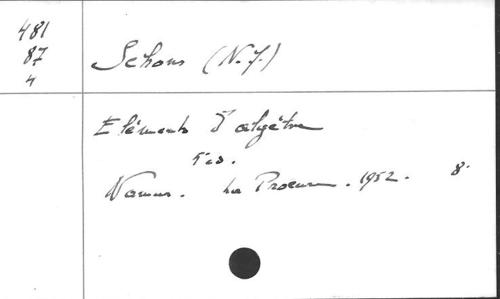 481
87
4
Schons (N.J.)
Eléments d'algèbre
5 éd.
Namur. La Procure. 1952. 8.